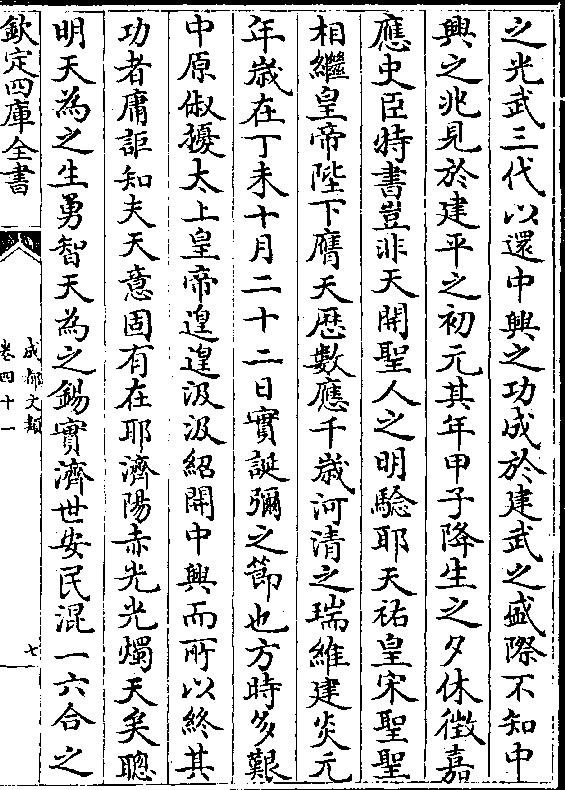 之光武三代以還中興之功成於建武之盛際不知中
興之兆見於建平之初元其年甲子降生之夕休徴嘉
應史臣特書豈非天開聖人之明驗耶天祐皇宋聖聖
相繼皇帝陛下膺天歴數應千歲河清之瑞維建炎元
年歲在丁未十月二十二日實誕彌之節也方時多艱
中原俶擾太上皇帝遑遑汲汲紹開中興而所以終其
功者庸詎知夫天意固有在耶濟陽赤光光燭天矣聰
明天為之生勇智天為之錫實濟世安民混一六合之
欽定四庫全書
成都文類
卷四十一
七